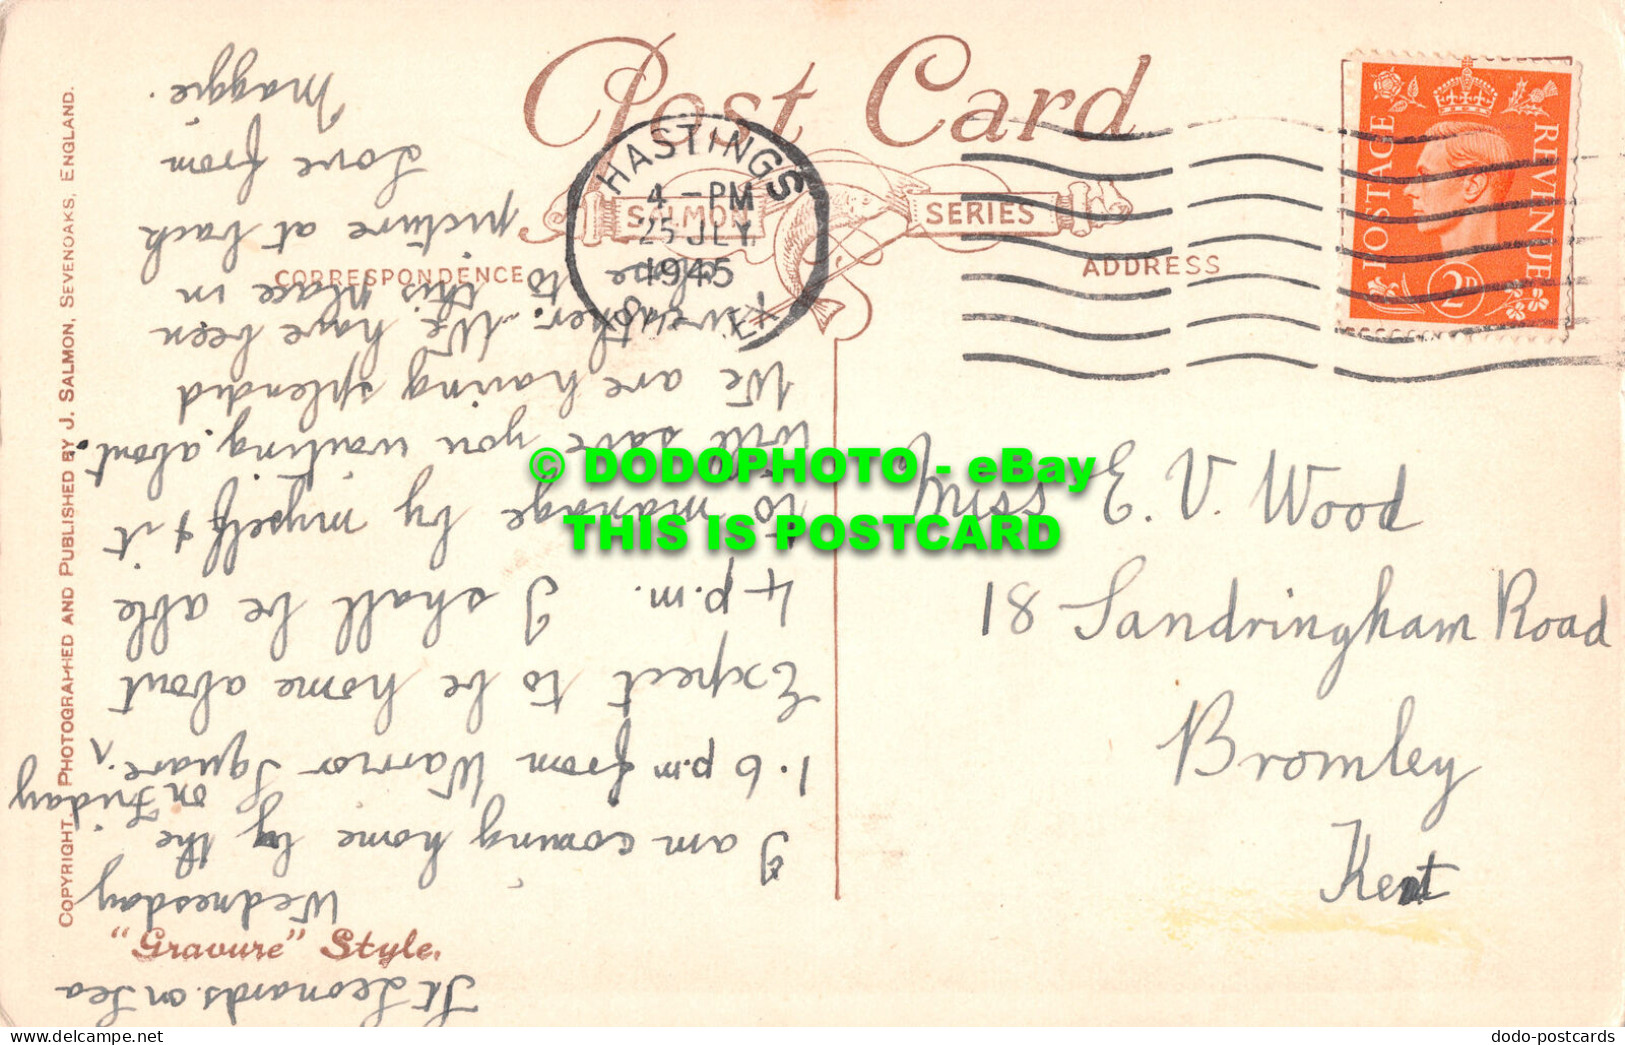 Post Card
SALMON SERIES
CORRESPONDENCE
ADDRESS
HASTINGS
4 - PM
25 JLY
1945
SUSSEX
POSTAGE
REVENUE
2D
COPYRIGHT, PHOTOGRAPHED AND PUBLISHED BY J. SALMON, SEVENOAKS, ENGLAND.
"Gravure" Style.
St Leonards on Sea
Wednesday
I am coming home by the
on Friday
1.6 p.m from Warrior Square. ^
Expect to be home about
4 p.m. I shall be able
to manage by myself & it
will save you waiting about.
We are having splendid
weather. We have been
to this place in
picture at back
Love from
Maggie.
Miss E. V. Wood
18 Sandringham Road
Bromley
Kent
© DODOPHOTO - eBay
THIS IS POSTCARD
delcampe.net
dodo-postcards